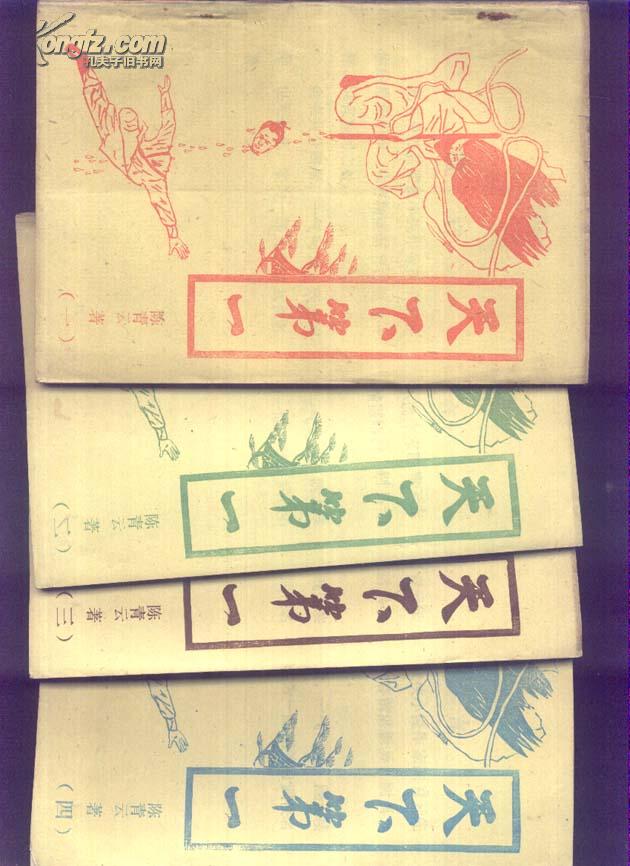 Kongfz.com
孔夫子旧书网
天下第一
陈青云著
（一）
天下第一
陈青云著
（二）
天下第一
陈青云著
（三）
天下第一
陈青云著
（四）